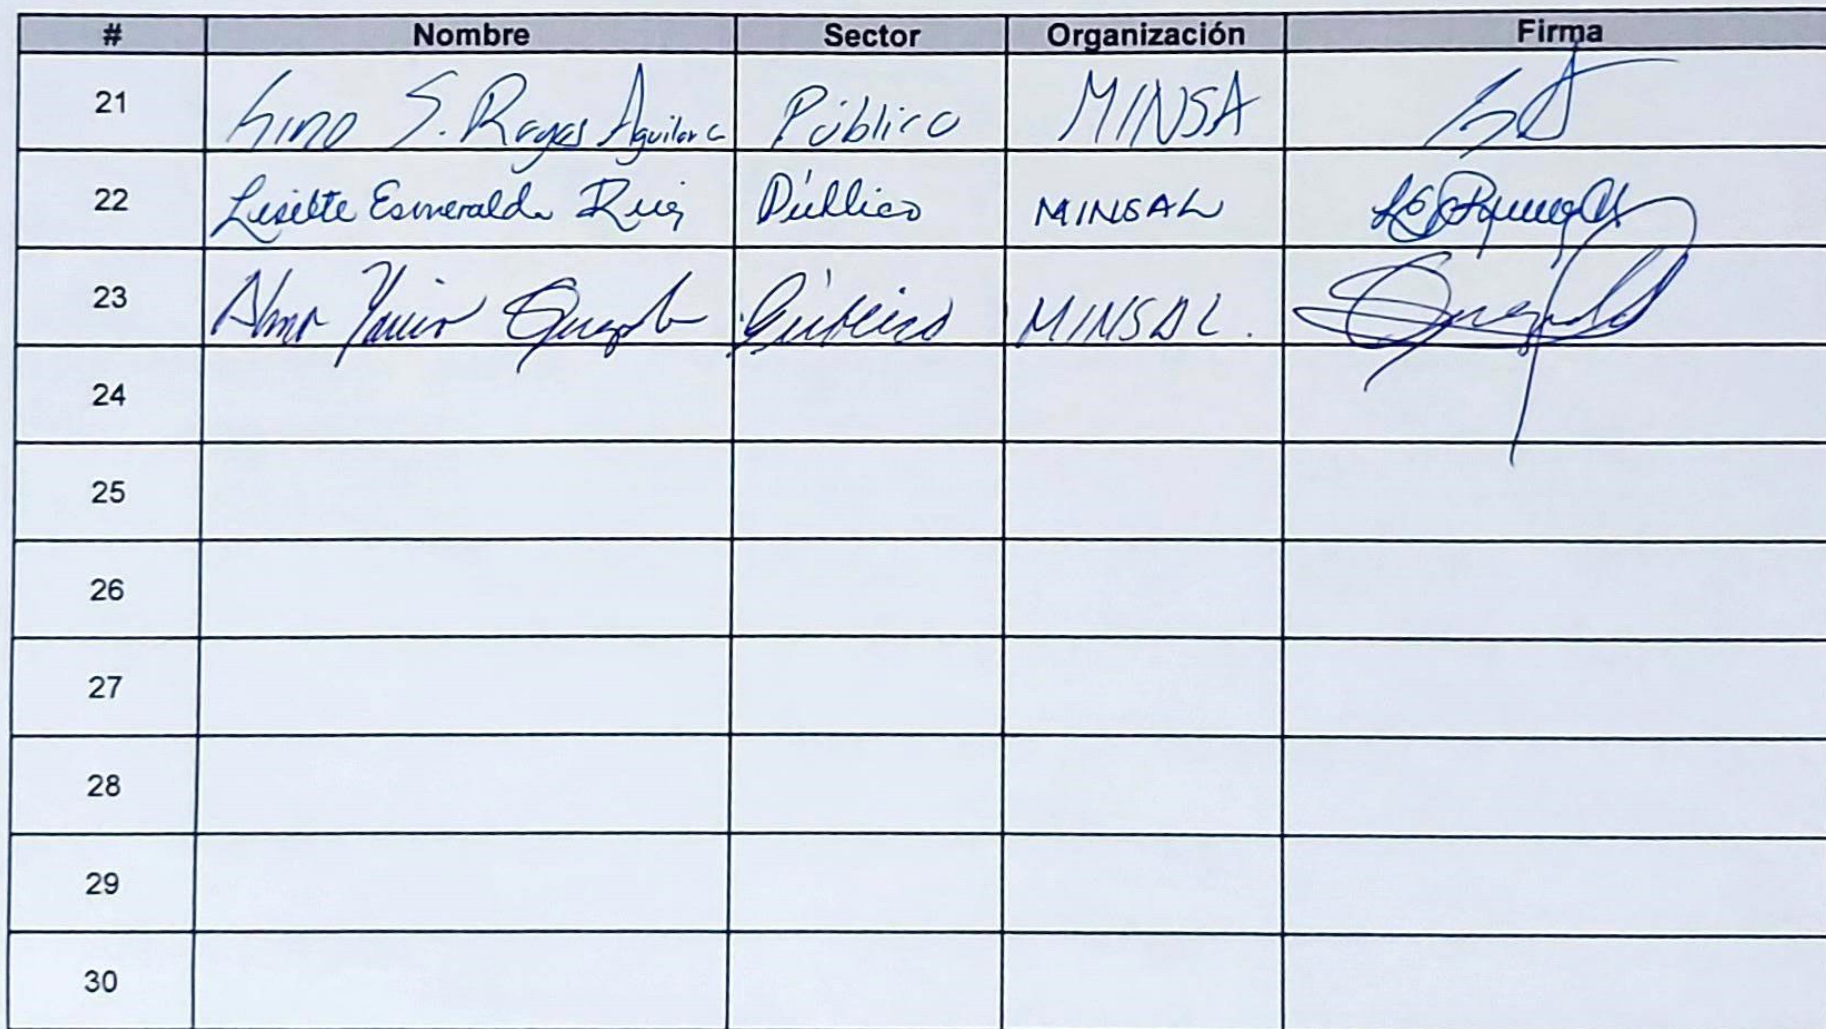 # Nombre Sector Organización Firma
21 S. Reyes Aguilar Público MINSA
22 Lisette Esmeralda Ruiz Público MINSAL
23 Alma Público MINSAL.
24
25
26
27
28
29
30